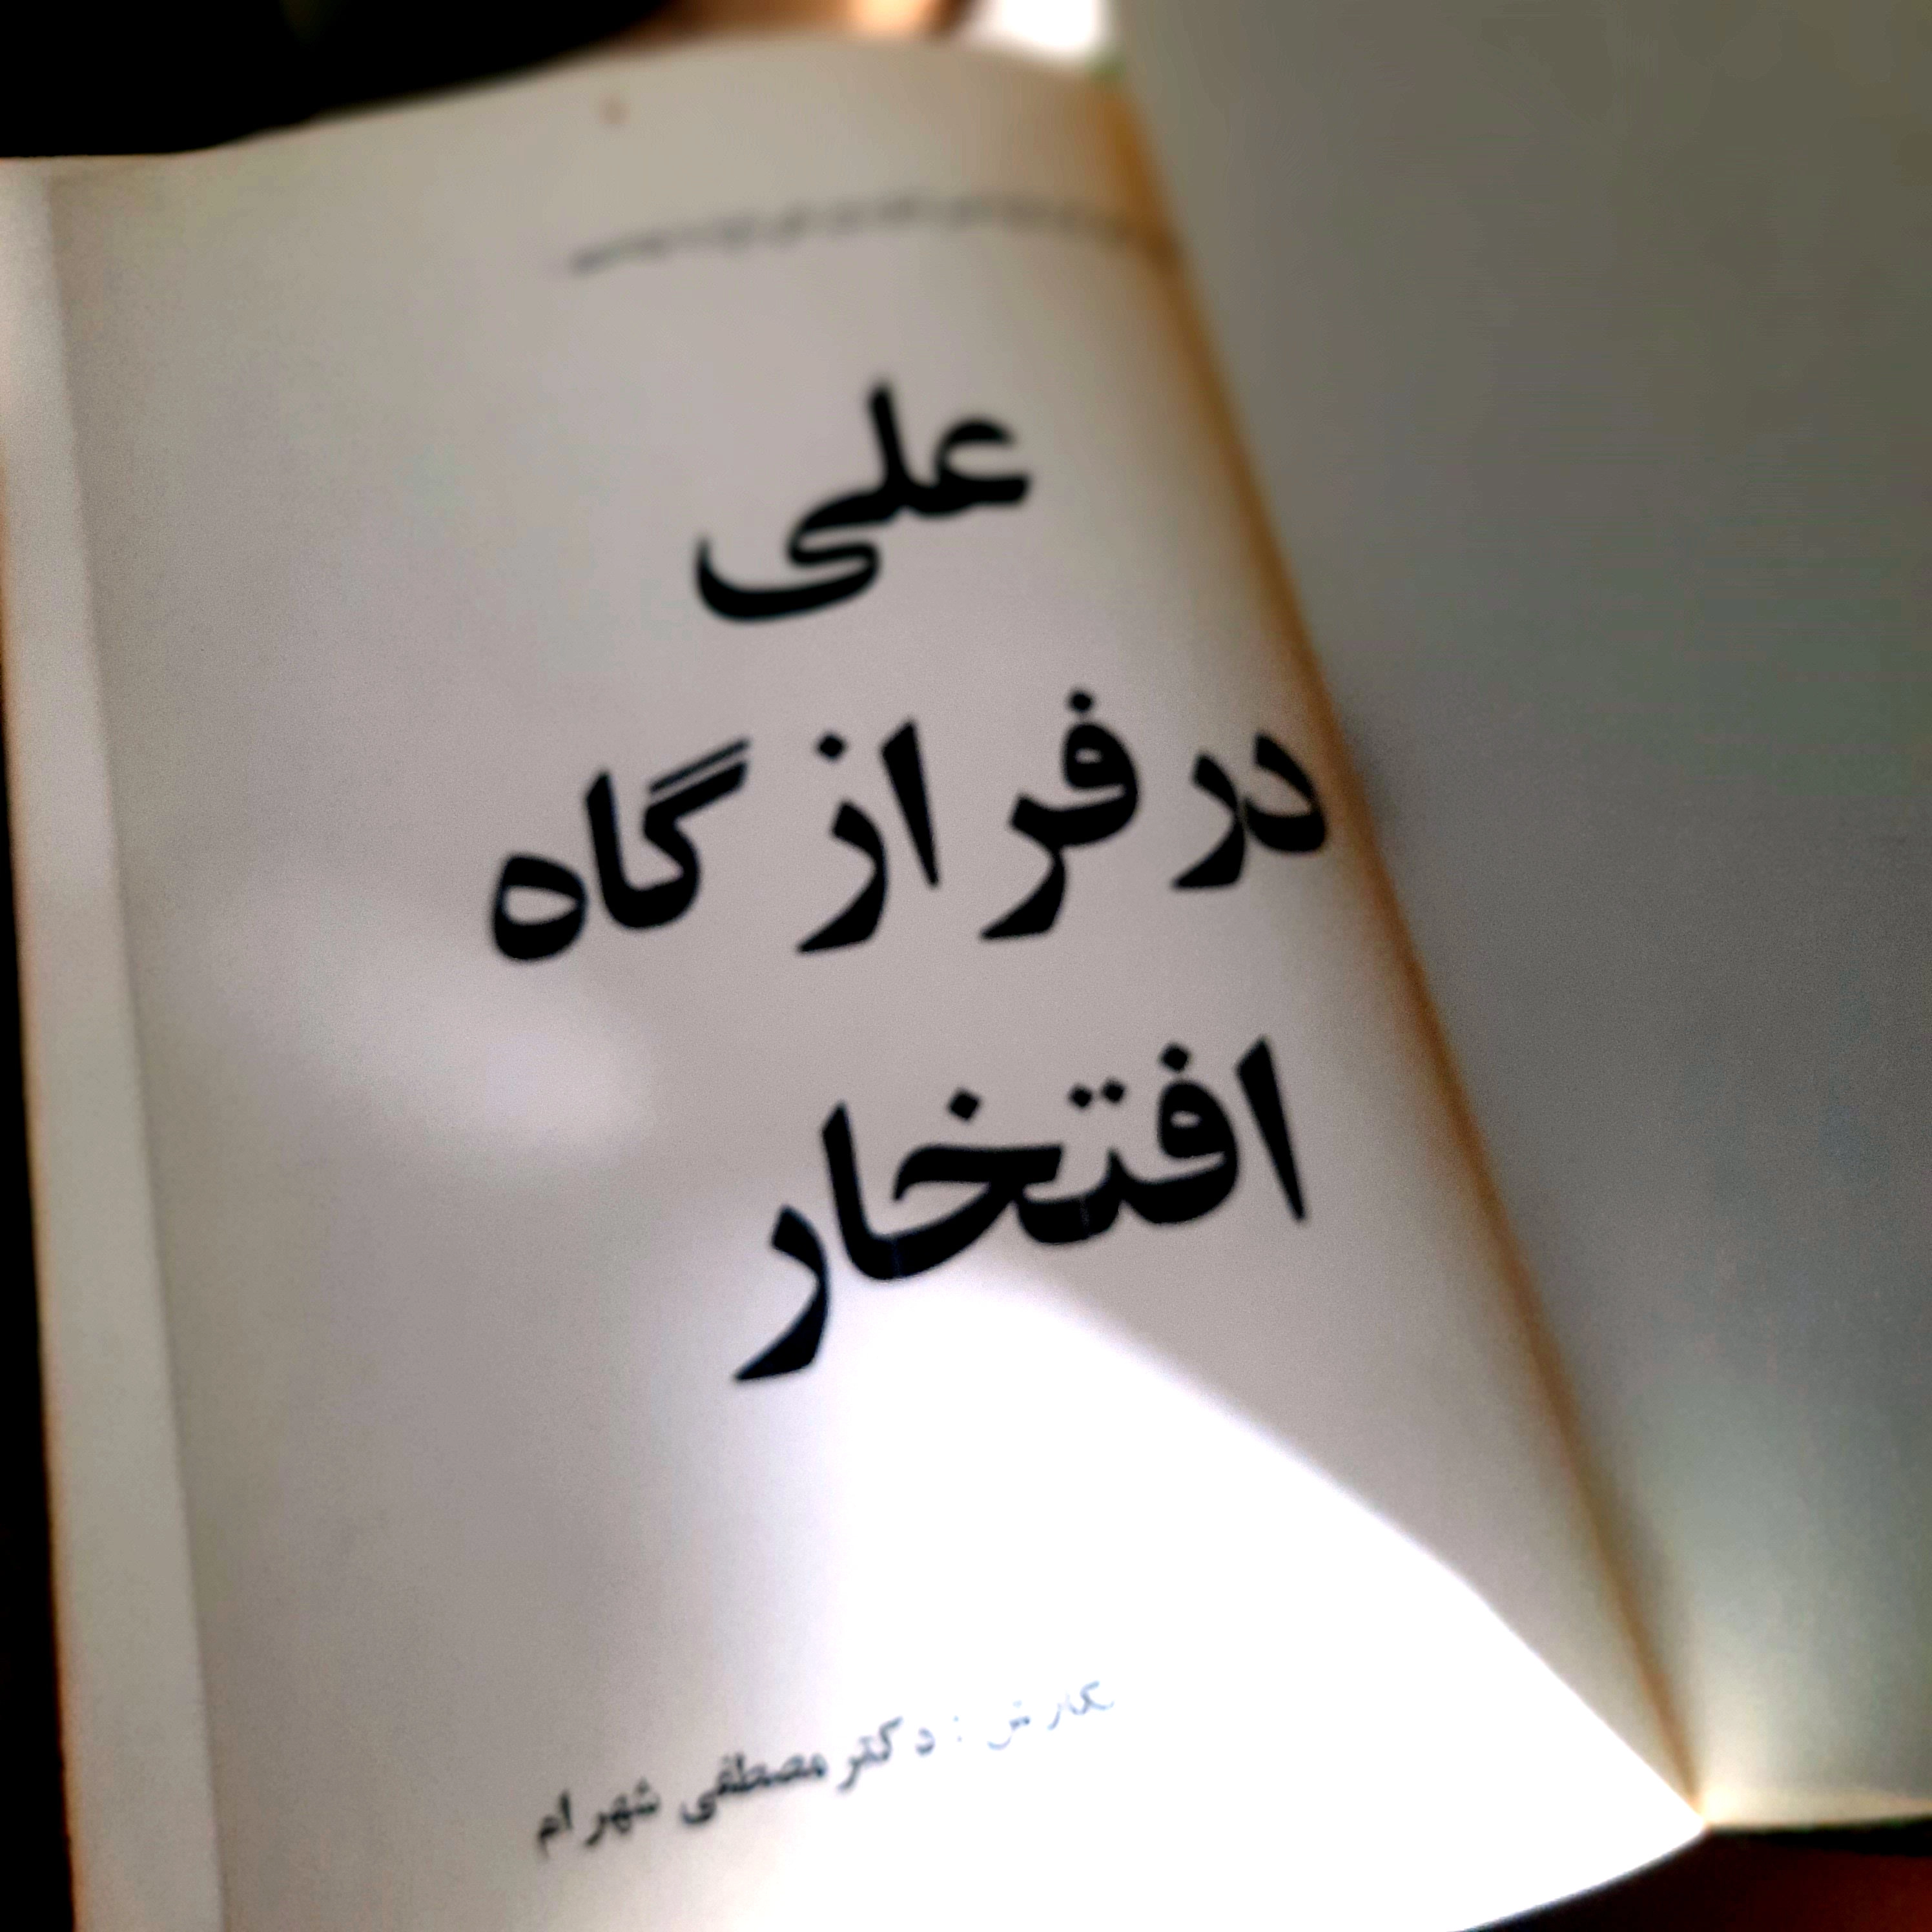 علی
در فرازگاه
افتخار
نگارش : دکتر مصطفی شهرام